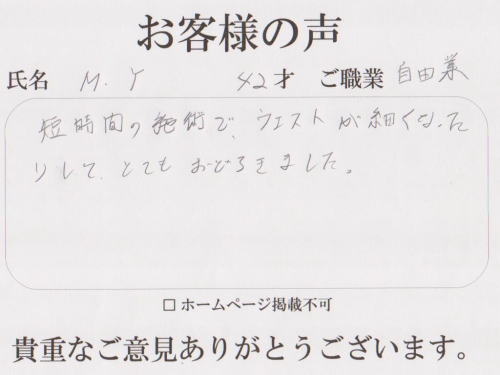 お客様の声
氏名 M.Y 42才 ご職業 自由業
短時間の施術で、ウエストが細くなった
りして、とてもおどろきました。
□ ホームページ掲載不可
貴重なご意見ありがとうございます。